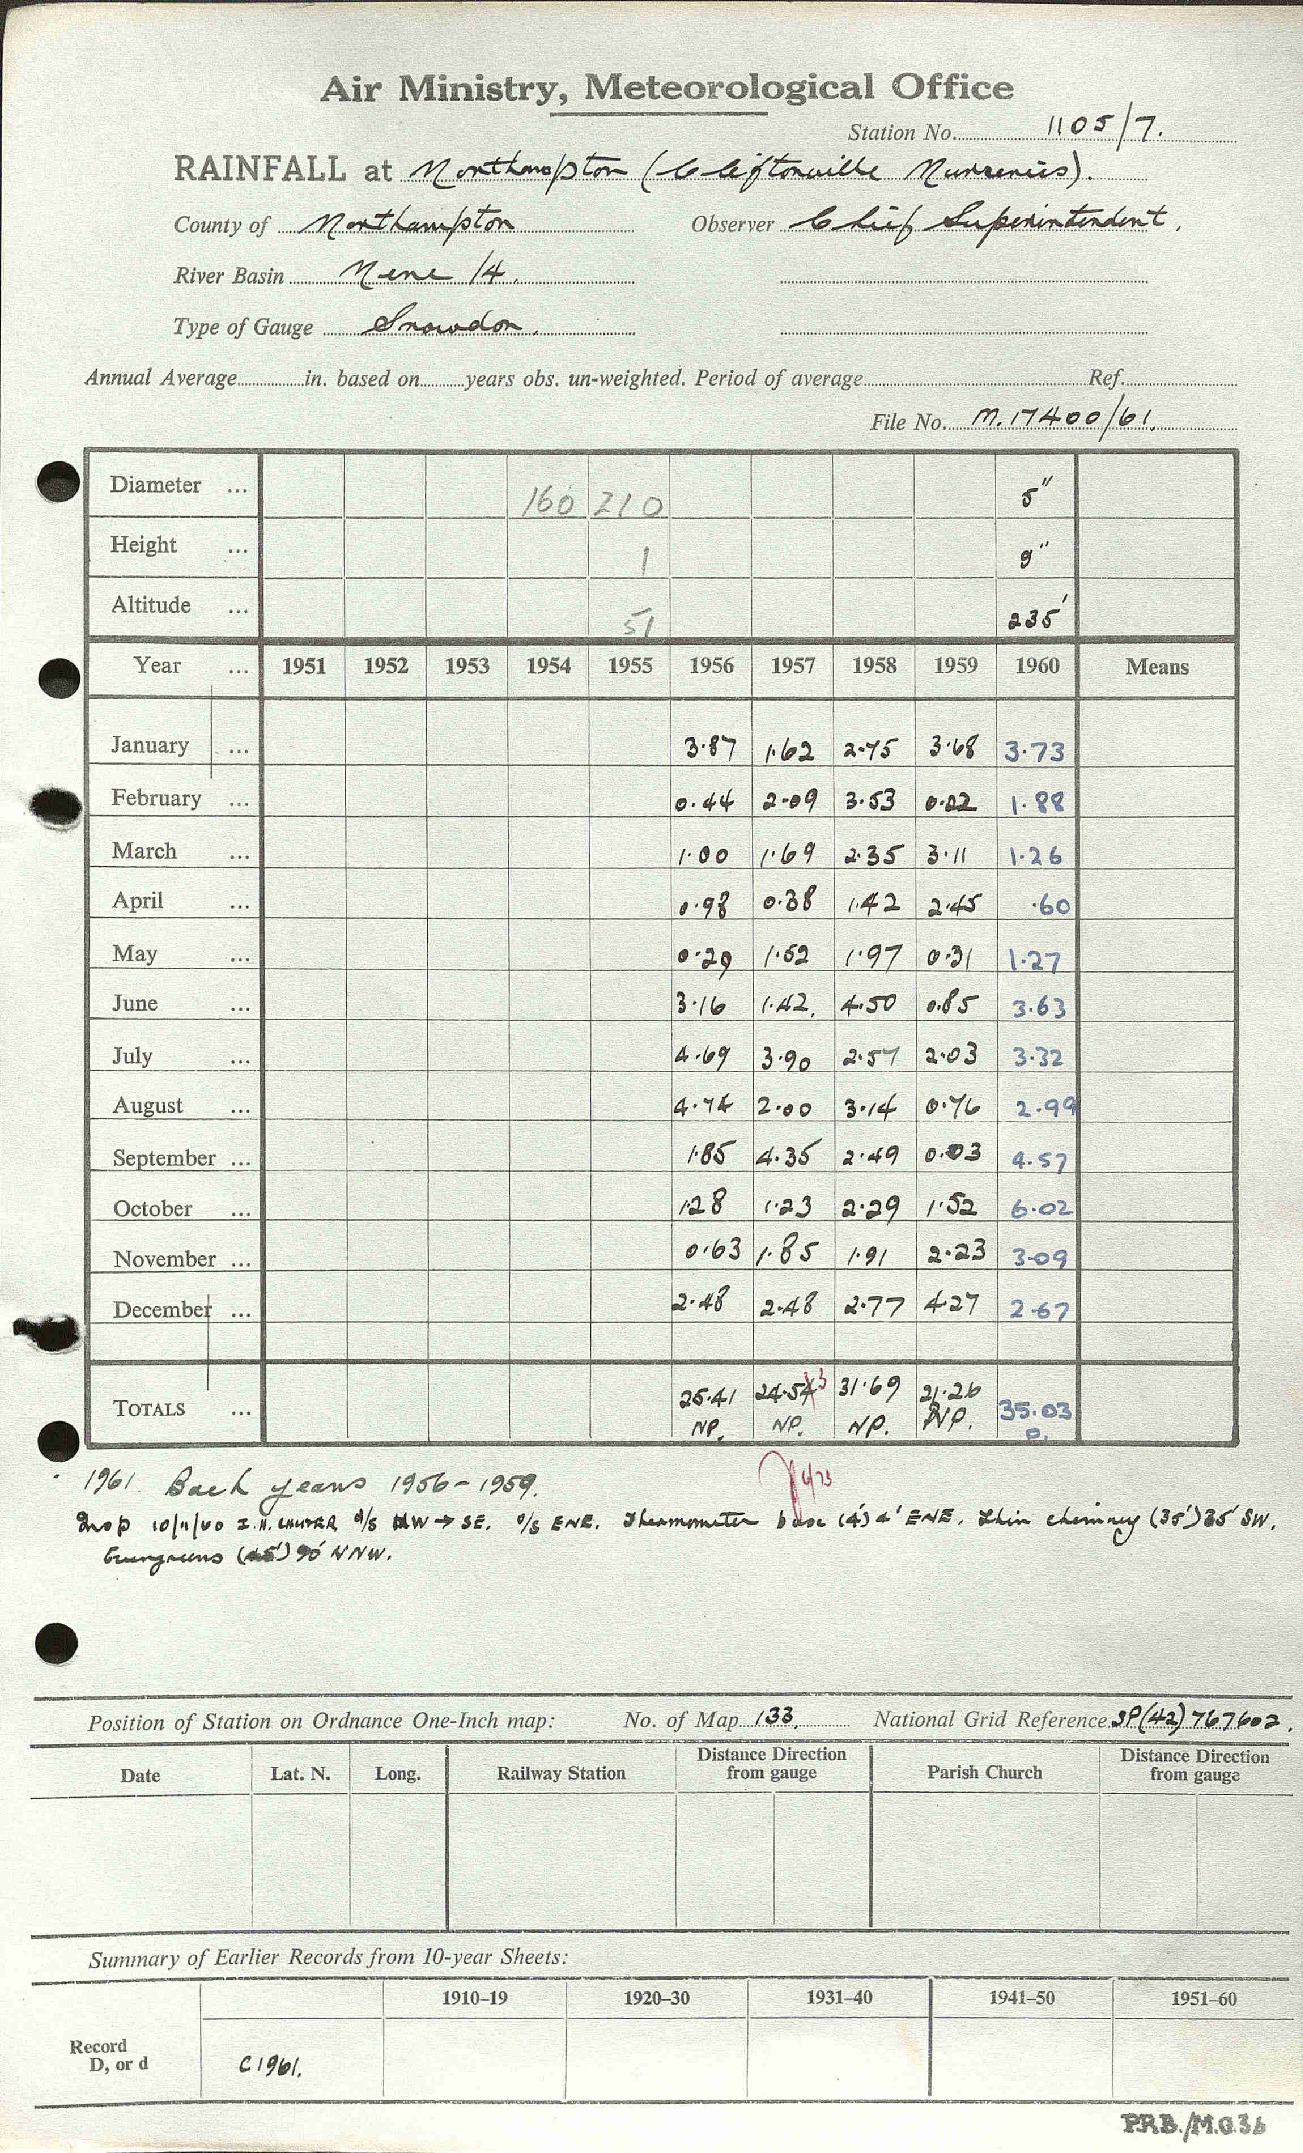 Air Ministry, Meteorological Office
Station No. 1105/7.
RAINFALL at Northampton (Cliftonville Nurseries).
County of Northampton Observer Chief Superintendent.
River Basin Nene 14.
Type of Gauge Snowdon.
Annual Average in. based on years obs. un-weighted. Period of average Ref.
File No. M.17400/61.
Diameter ... 160 210 5"
Height ... 1 9"
Altitude ... 51 235'
Year ... 1951 1952 1953 1954 1955 1956 1957 1958 1959 1960 Means
January ... 3.87 1.62 2.75 3.68 3.73
February ... 0.44 2.09 3.53 0.02 1.88
March ... 1.00 1.69 2.35 3.11 1.26
April ... 0.98 0.38 1.42 2.45 .60
May ... 0.29 1.52 1.97 0.31 1.27
June ... 3.16 1.42. 4.50 0.85 3.63
July ... 4.69 3.90 2.57 2.03 3.32
August ... 4.74 2.00 3.14 0.76 2.99
September ... 1.85 4.35 2.49 0.03 4.57
October ... 1.28 1.23 2.29 1.52 6.02
November ... 0.63 1.85 1.91 2.23 3.09
December ... 2.48 2.48 2.77 4.27 2.67
TOTALS ... 25.41 24.54 3 31.69 21.26 35.03
NP. NP. NP. NP. P.
1961. Back years 1956-1959. 4/73
Insp 10/11/60 S. NW → SE. ENE. Thermometer base (4') 4' ENE. Thin chimney (35') 35' SW.
Evergreens (45') 90' NNW.
Position of Station on Ordnance One-Inch map: No. of Map 133. National Grid Reference SP(42) 767602.
Date Lat. N. Long. Railway Station Distance Direction from gauge Parish Church Distance Direction from gauge
Summary of Earlier Records from 10-year Sheets:
1910-19 1920-30 1931-40 1941-50 1951-60
Record
D, or d C1961.
P.R.B./M.O.3b